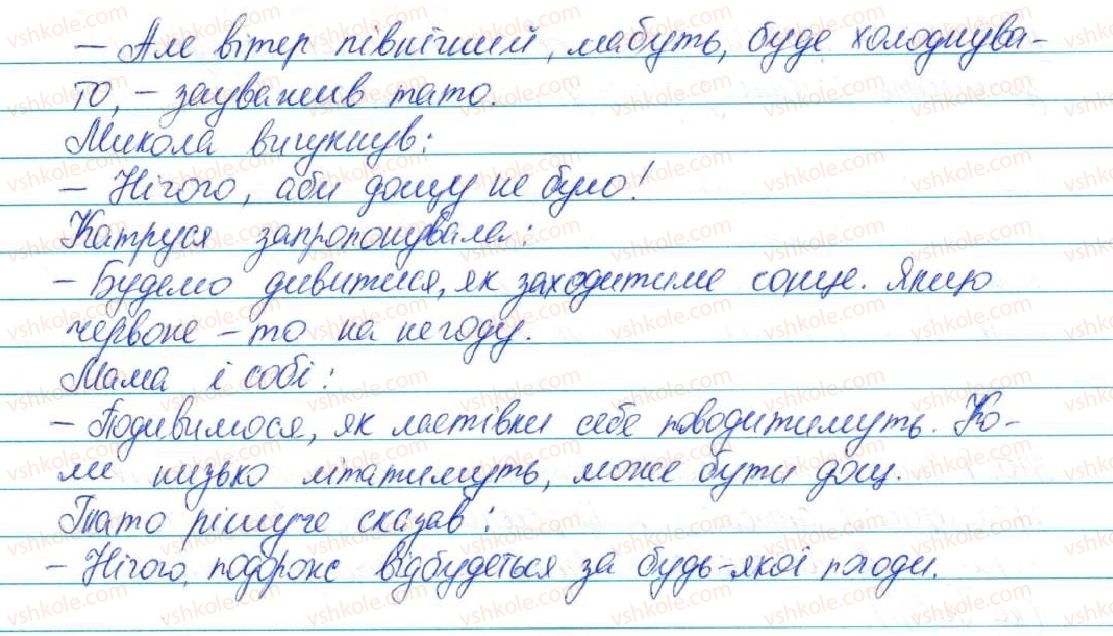 — Але вітер північний, мабуть, буде холоднува-
то, — зауважив тато.
Микола вигукнув:
— Нічого, аби дощу не було!
Катруся запропонувала:
— Будемо дивитися, як заходитиме сонце. Якщо
червоне — то на негоду.
Мама і собі:
— Подивимося, як ластівки себе поводитимуть. Ко-
ли низько літатимуть, може бути дощ.
Тато рішуче сказав:
— Нічого, подорож відбудеться за будь-якої погоди.